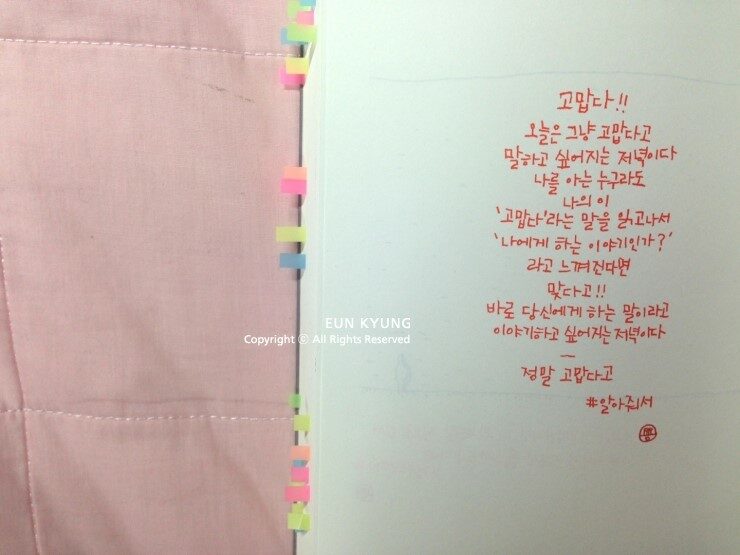 고맙다!!
오늘은 그냥 고맙다고
말하고 싶어지는 저녁이다
나를 아는 누구라도
나의 이
'고맙다'라는 말을 읽고나서
'나에게 하는 이야기인가?'
라고 느껴진다면
맞다고!!
바로 당신에게 하는 말이라고
이야기하고 싶어지는 저녁이다
—
정말 고맙다고
#알아줘서
EUN KYUNG
Copyright ⓒ All Rights Reserved